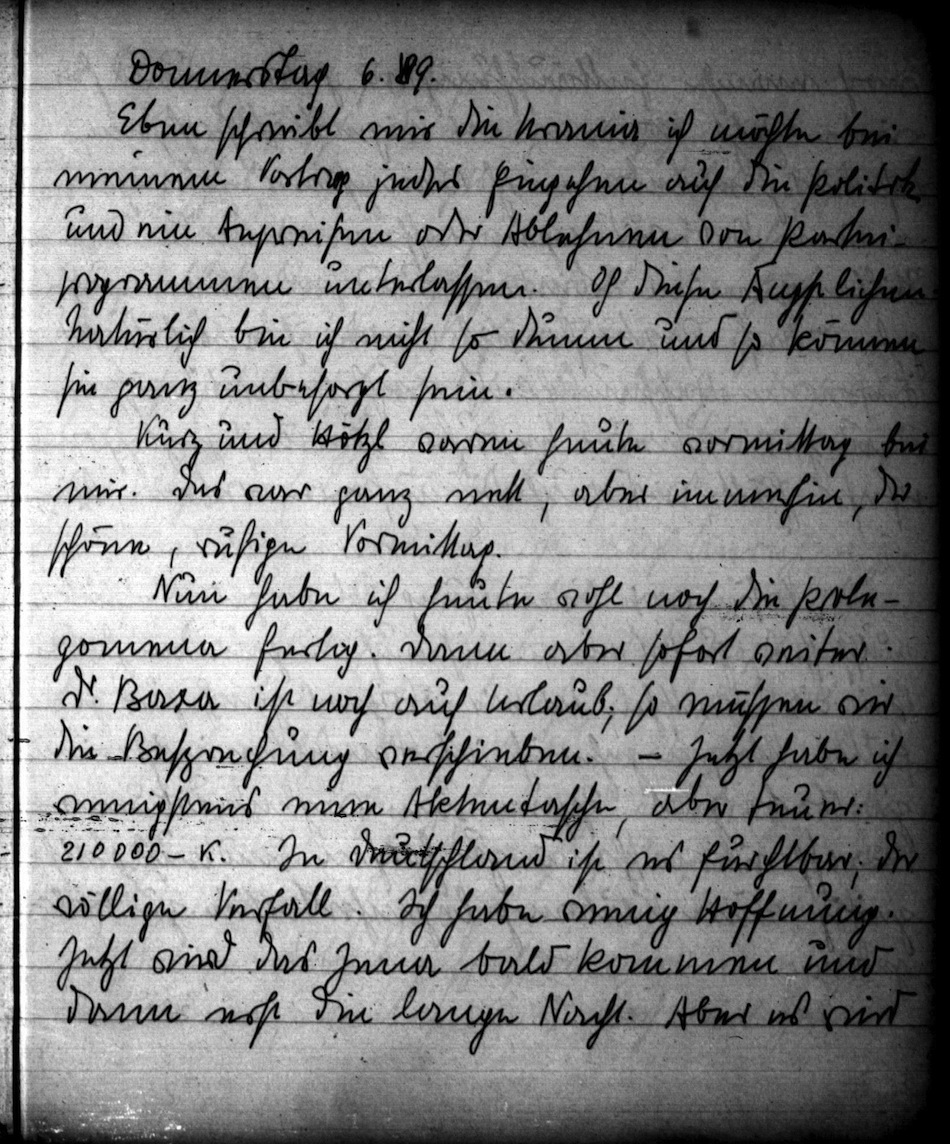 Donnerstag 6. 9.
Eben schreibt mir die Urania ich möchte bei
meinem Vortrag jedes Eingehen auf die Politik
und ein Anpreisen oder Ablehnen von Partei-
programmen unterlassen. O diese Ängstlichen.
Natürlich bin ich nicht so dumm und so können
sie ganz unbesorgt sein.
Kurz und Hötzl waren heute vormittag bei
mir. Das war ganz nett, aber immerhin, der
schöne, ruhige Vormittag.
Nun habe ich heute wohl noch die Prole-
gomena fertig. Dann aber sofort weiter.
Dr. Baxa ist noch auf Urlaub; so müssen wir
die Besprechung verschieben. — Jetzt habe ich
wenigstens eine Aktentasche, aber teuer:
210000 – K. In Deutschland ist es furchtbar; der
völlige Verfall. Ich habe wenig Hoffnung.
Jetzt wird das Jena bald kommen und
dann erst die lange Nacht. Aber es wird